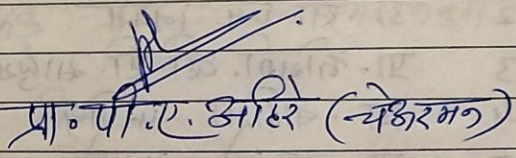 प्रा. पी.ए. अहिरे (चेअरमन)